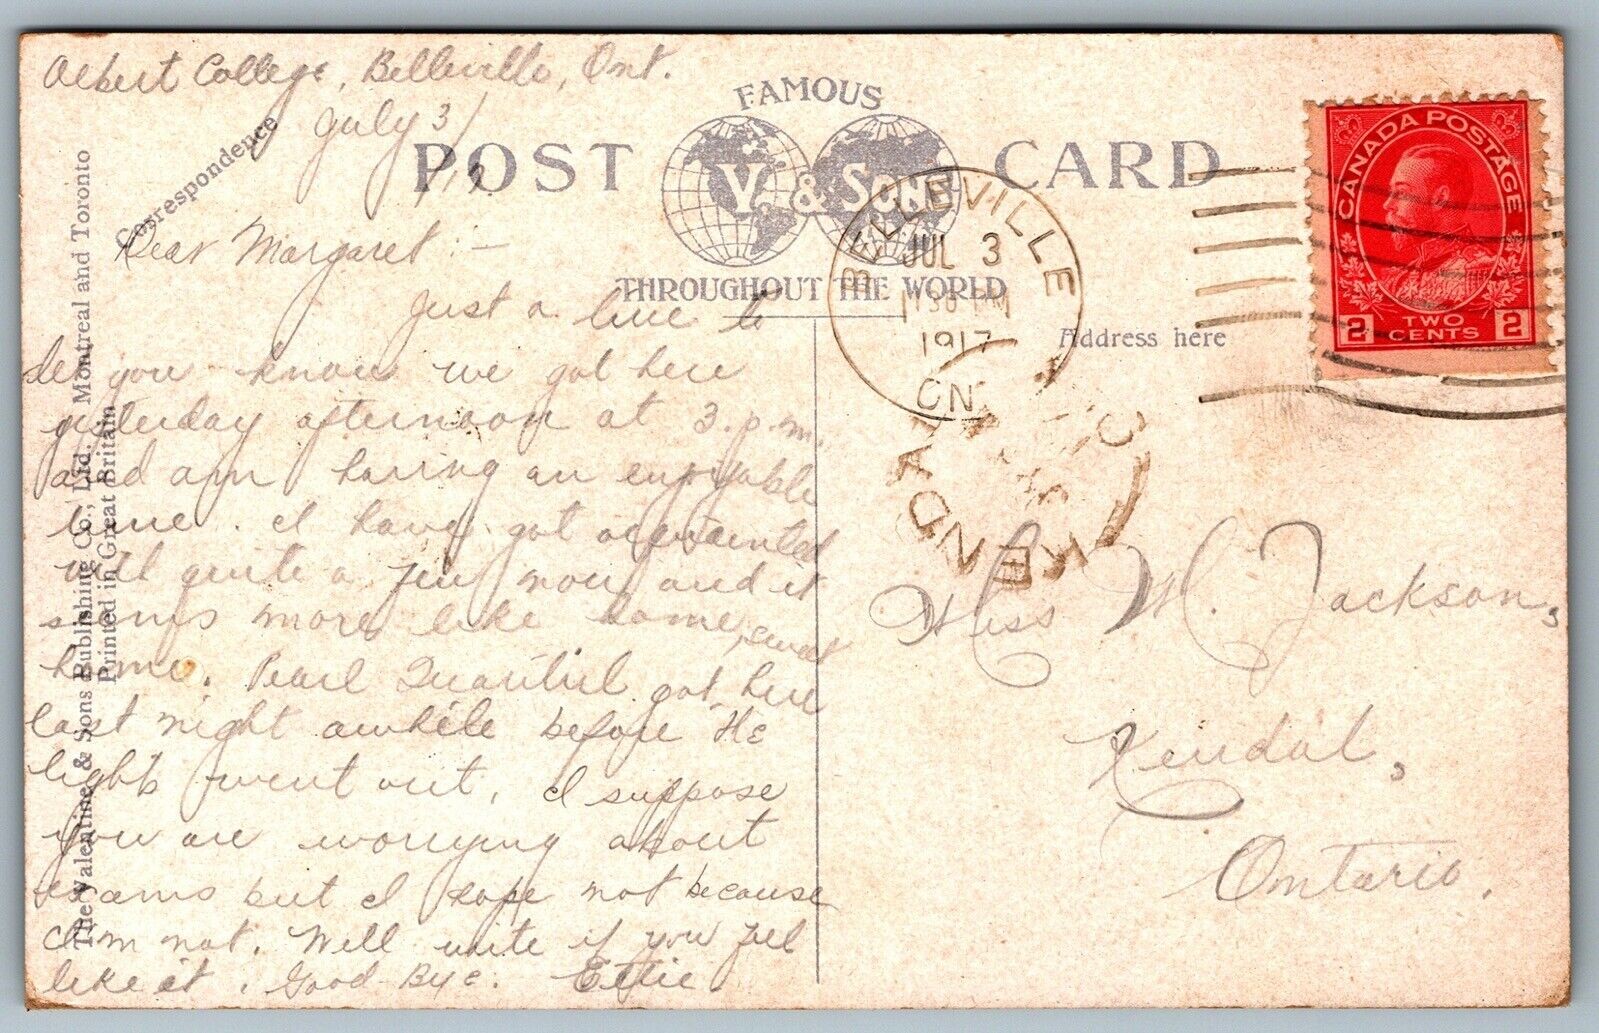 Albert College, Belleville, Ont.
July 3/
17
Dear Margaret:-
Just a line to
let you know we got here
yesterday afternoon at 3.p.m.
and am having an enjoyable
time. I have got acquainted
with quite a few now and it
seems more like home, sweet
home. Pearl got here
last night awhile before the
lights went out. I suppose
you are worrying about
exams but I hope not because
I'm not. Will write if you feel
like it. Good-Bye. Effie.
Correspondence
The Valentine & Sons Publishing Co., Ltd. Montreal and Toronto
Printed in Great Britain
FAMOUS
POST CARD
V. & SONS
THROUGHOUT THE WORLD
BELLEVILLE
JUL 3
1917
ONT
KENDAL
Address here
CANADA POSTAGE
2 TWO CENTS 2
Miss M. Jackson,
Kendal,
Ontario.